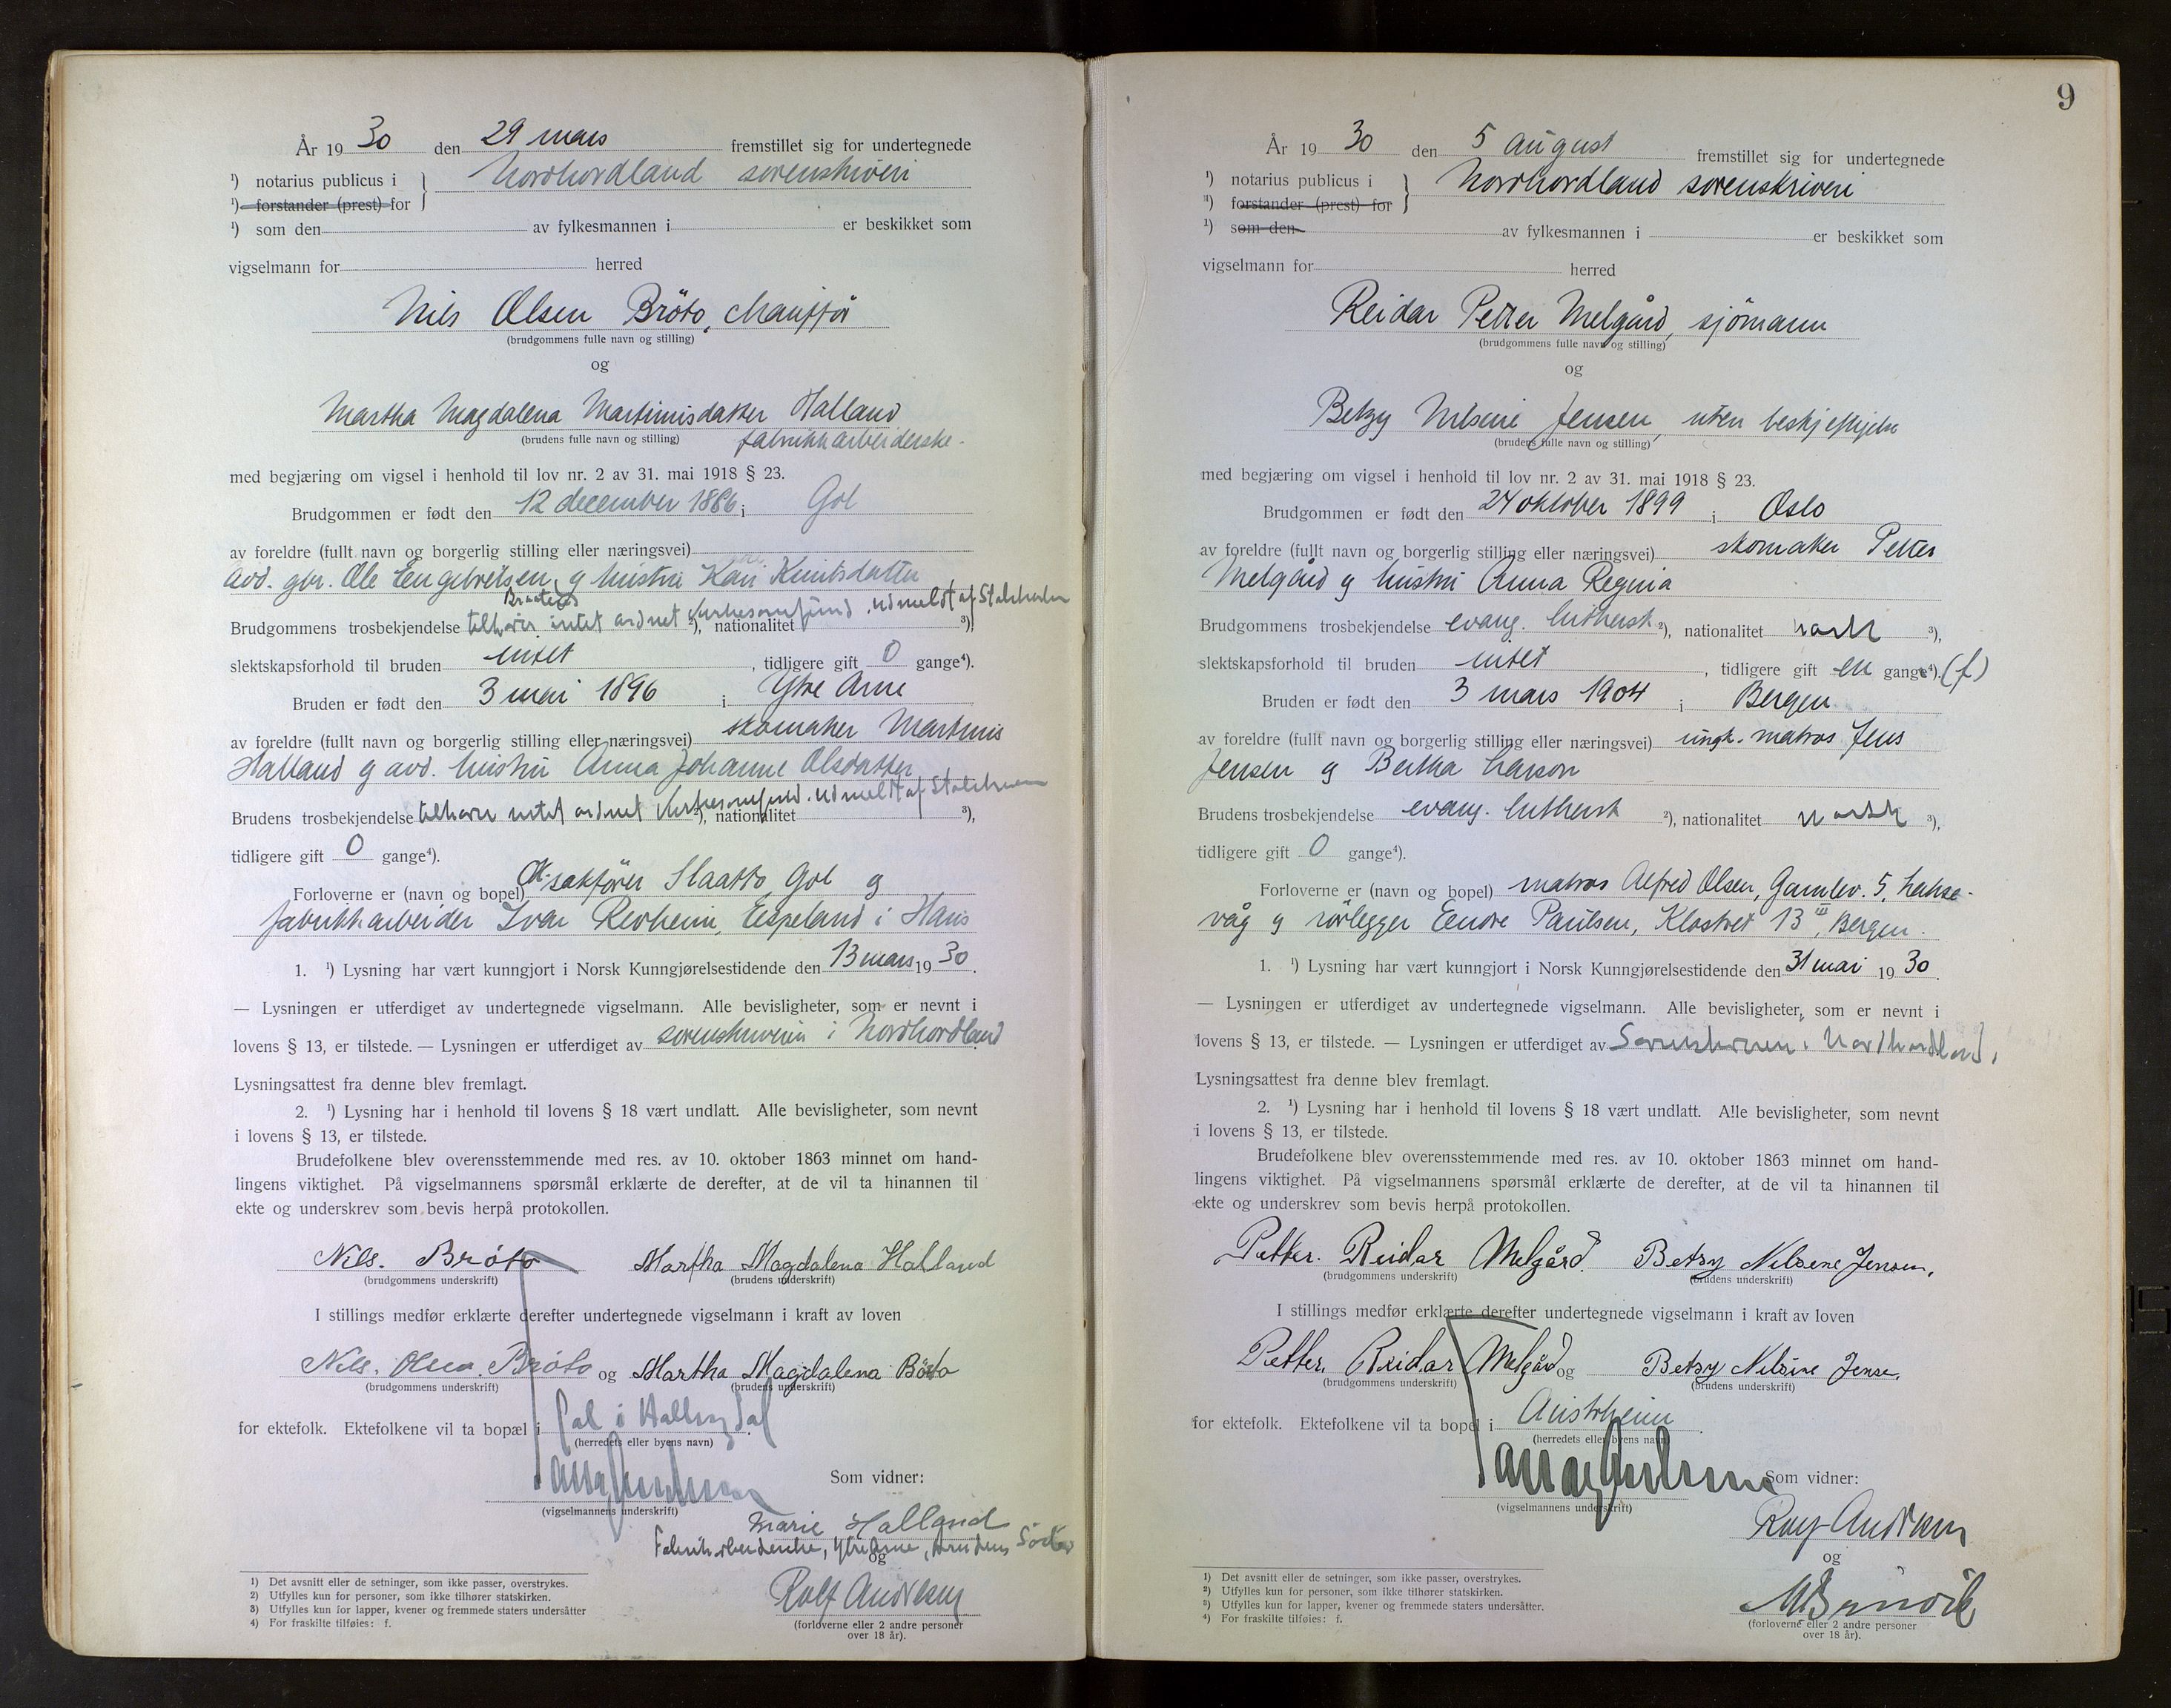 År 1930 den 29 mars fremstillet sig for undertegnede
¹) notarius publicus i } Nordhordland sorenskriveri
¹) forstander (prest) for
¹) som den av fylkesmannen i er beskikket som
vigselmann for herred
Nils Olsen Bröto, chauffør
(brudgommens fulle navn og stilling)
og
Martha Magdalena Martinusdatter Halland
(brudens fulle navn og stilling) fabrikkarbeiderske.
med begjæring om vigsel i henhold til lov nr. 2 av 31. mai 1918 § 23.
Brudgommen er født den 12 december 1886 i Gol
av foreldre (fullt navn og borgerlig stilling eller næringsvei)
avd. gbr. Ole Engebretsen og hustru Kari Knutsdatter
Brudgommens trosbekjendelse tilhører intet ordnet kirkesamfund. Udmeldt af Statskirken ²), nationalitet ³),
slektskapsforhold til bruden intet, tidligere gift 0 gange⁴).
Bruden er født den 3 mai 1896 i Ytre Arne
av foreldre (fullt navn og borgerlig stilling eller næringsvei) skomaker Martinus
Halland og avd. hustru Anna Johanne Olsdatter
Brudens trosbekjendelse tilhører intet ordnet kirkesamfund. Udmeldt af Statskirken ²), nationalitet ³),
tidligere gift 0 gange⁴).
Forloverne er (navn og bopel) O.r.sakfører Slaatto, Gol og
fabrikkarbeider Ivar Revheim, Espeland i Haus
1. ¹) Lysning har vært kunngjort i Norsk Kunngjørelsestidende den 13 mars 1930.
— Lysningen er utferdiget av undertegnede vigselmann. Alle bevisligheter, som er nevnt i
lovens § 13, er tilstede. — Lysningen er utferdiget av sorenskriveren i Nordhordland
Lysningsattest fra denne blev fremlagt.
2. ¹) Lysning har i henhold til lovens § 18 vært undlatt. Alle bevisligheter, som nevnt
i lovens § 13, er tilstede.
Brudefolkene blev overensstemmende med res. av 10. oktober 1863 minnet om hand-
lingens viktighet. På vigselmannens spørsmål erklærte de derefter, at de vil ta hinannen til
ekte og underskrev som bevis herpå protokollen.
Nils. Bröto Martha Magdalena Halland
(brudgommens underskrift) (brudens underskrift)
I stillings medfør erklærte derefter undertegnede vigselmann i kraft av loven
Nils. Olsen. Bröto og Martha Magdalena Bröto
(brudgommens underskrift) (brudens underskrift)
for ektefolk. Ektefolkene vil ta bopæl i Gol i Hallingdal.
(herredets eller byens navn)
Som vidner:
(vigselmannens underskrift)
Marie Halland
Fabrikarbeiderske, Ytre Arne, brudens Söster
og
Rolf Andersen
(forloverne eller 2 andre personer
over 18 år).
1) Det avsnitt eller de setninger, som ikke passer, overstrykes.
2) Utfylles kun for personer, som ikke tilhører statskirken.
3) Utfylles kun for lapper, kvener og fremmede staters undersåtter
4) For fraskilte tilføies: f.
9
År 1930 den 5 august fremstillet sig for undertegnede
¹) notarius publicus i } Nordhordland sorenskriveri
¹) forstander (prest) for
¹) som den av fylkesmannen i er beskikket som
vigselmann for herred
Reidar Petter Melgård, sjömann
(brudgommens fulle navn og stilling)
og
Betzy Nilsine Jensen, uten beskjeftigelse
(brudens fulle navn og stilling)
med begjæring om vigsel i henhold til lov nr. 2 av 31. mai 1918 § 23.
Brudgommen er født den 24 oktober 1899 i Oslo
av foreldre (fullt navn og borgerlig stilling eller næringsvei) skomaker Petter
Melgård og hustru Anna Regina
Brudgommens trosbekjendelse evang. luthersk ²), nationalitet norsk ³),
slektskapsforhold til bruden intet, tidligere gift en gange⁴). (f)
Bruden er født den 3 mars 1904 i Bergen
av foreldre (fullt navn og borgerlig stilling eller næringsvei) ungk. matros Jens
Jensen og Bertha Larson
Brudens trosbekjendelse evang. luthersk ²), nationalitet norsk ³),
tidligere gift 0 gange⁴).
Forloverne er (navn og bopel) matros Alfred Olsen, Gamlev. 5, Lakse-
våg og rörlegger Endre Paulsen, Klostret 13 III, Bergen.
1. ¹) Lysning har vært kunngjort i Norsk Kunngjørelsestidende den 31 mai 1930.
— Lysningen er utferdiget av undertegnede vigselmann. Alle bevisligheter, som er nevnt i
lovens § 13, er tilstede. — Lysningen er utferdiget av Sorenskriveren i Nordhordland.
Lysningsattest fra denne blev fremlagt.
2. ¹) Lysning har i henhold til lovens § 18 vært undlatt. Alle bevisligheter, som nevnt
i lovens § 13, er tilstede.
Brudefolkene blev overensstemmende med res. av 10. oktober 1863 minnet om hand-
lingens viktighet. På vigselmannens spørsmål erklærte de derefter, at de vil ta hinannen til
ekte og underskrev som bevis herpå protokollen.
Petter. Reidar Melgård. Betsy Nilsene Jensen.
(brudgommens underskrift) (brudens underskrift)
I stillings medfør erklærte derefter undertegnede vigselmann i kraft av loven
Petter. Reidar Melgård og Betsy Nilsine Jensen.
(brudgommens underskrift) (brudens underskrift)
for ektefolk. Ektefolkene vil ta bopel i Austrheim.
(herredets eller byens navn)
Som vidner:
(vigselmannens underskrift)
Rolf Andersen
og
(forloverne eller 2 andre personer
over 18 år).
1) Det avsnitt eller de setninger, som ikke passer, overstrykes.
2) Utfylles kun for personer, som ikke tilhører statskirken.
3) Utfylles kun for lapper, kvener og fremmede staters undersåtter.
4) For fraskilte tilføies: f.